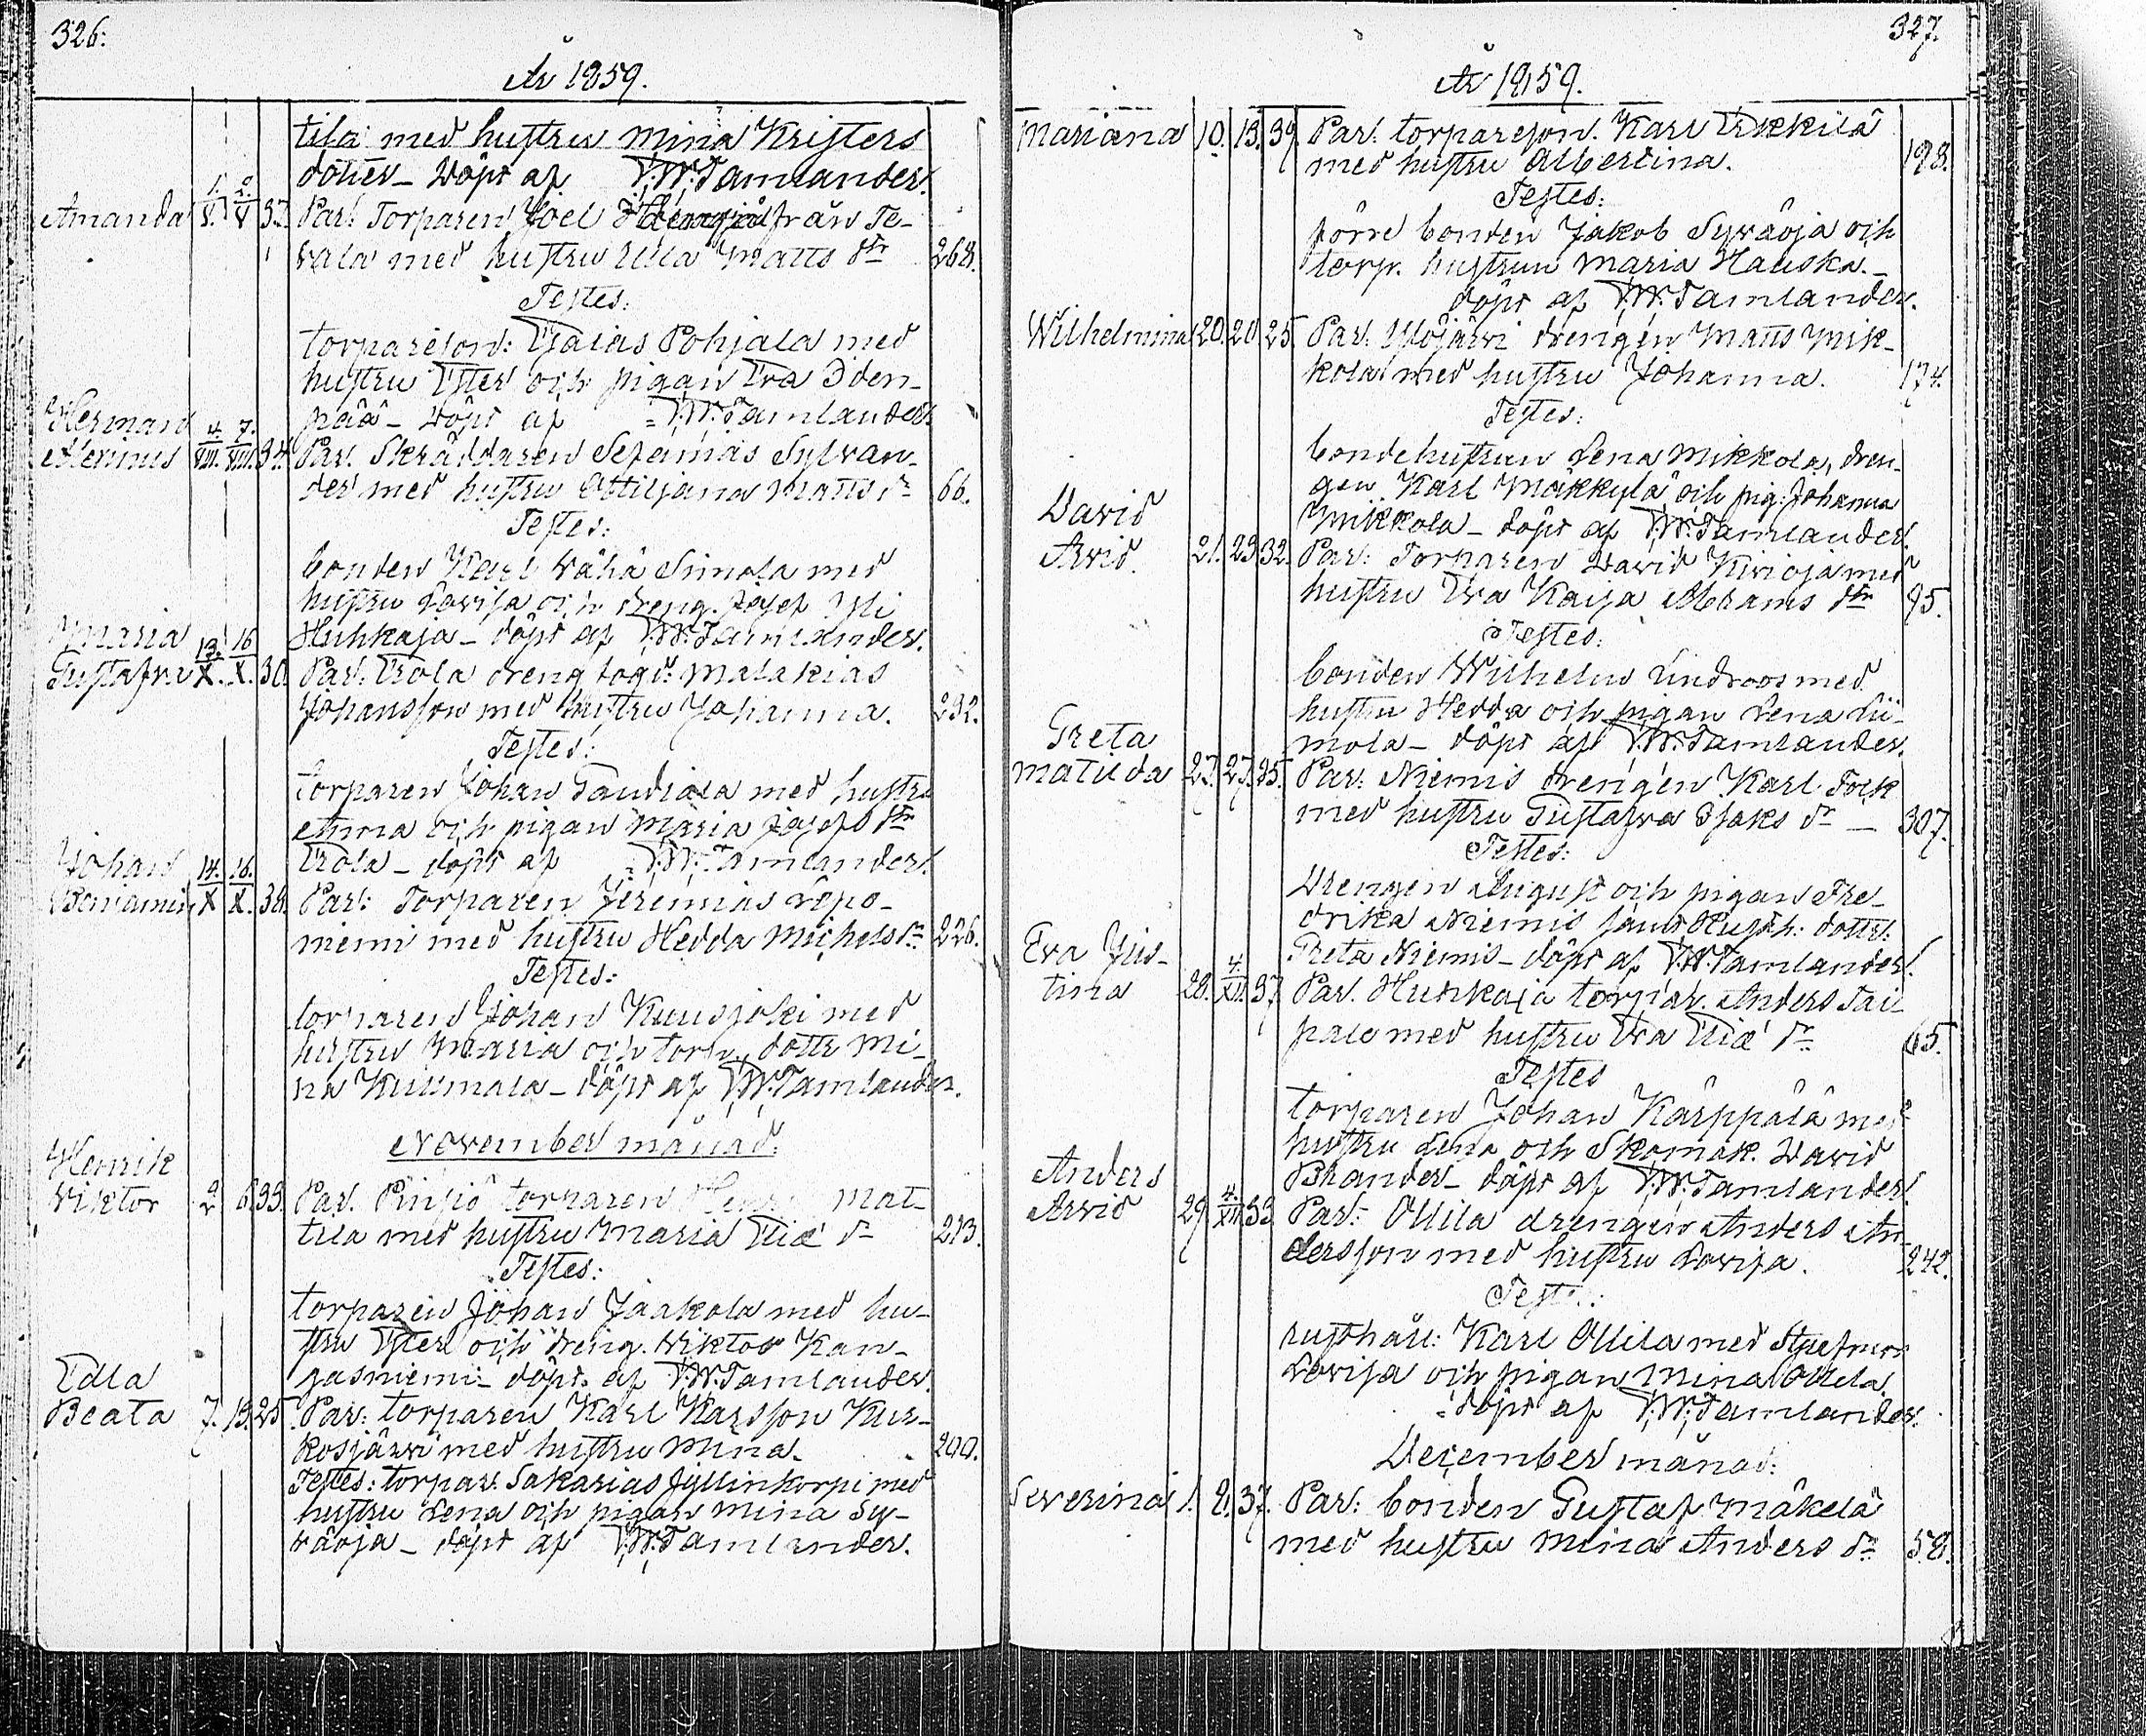 326.
År 1859.
tila med hustru Mina Kristers
dotter – döpt af F.W. Tamlander.
Amanda 1./V. 2./V 37. Par: Torparen Joel från Te-
vala med hustru Ulla Matts dr 268.
Testes:
torpareson: Esaias Pohjala med
hustru Ester och pigan Eva Iden-
pää – döpt af F.W. Tamlander.
Herman
Merinus 4./VIII. 7./VIII. 34. Par. Skräddaren Sefanias Sylvan-
der med hustru Ottiljana Matts dr 66.
Testes:
bonden Karl Vähä Simola med
hustru Lovisa och dreng. Josef Yli
Huhkaja – döpt af F.W. Tamlander.
Maria
Gustafva 13./X. 16./X. 30. Par: Erola dreng togd: Malakias
Johansson med hustru Johanna. 232.
Testes:
torparen Johan Taudiala med hustru
Anna och pigan Maria Josefs dr
Erola – döpt af F.W. Tamlander.
Johan
Benjamin 14./X 16./X. 38. Par: Torparen Jeremias Repo-
niemi med hustru Hedda Michels dr 226.
Testes:
torparen Johan Kuusjoki med
hustru Maria och torp. dottr Mi-
na Kuusmala – döpt af F.W. Tamlander.
November månad.
Henrik
Viktor 2 6. 33. Par. Pinsiö torparen Mat-
tila med hustru Maria Eliæ dr 213.
Testes:
torparen Johan Jaakola med hu-
stru Ester och dreng. Viktor Kan-
gasniemi – döpt af F.W. Tamlander.
Edla
Beata 7. 13. 25. Par: torparen Karl Karsson Kur-
kosjärvi med hustru Mina. 200.
Testes: torpar. Sakarias Jyllinkorpi med
hustru Lena och pigan Mina Sy-
väoja – döpt af F.W. Tamlander.
327.
År 1859.
Mariana 10. 13. 39. Par: torpareson. Karl Erkkilä
med hustru Albertina. 198.
Testes:
förre bonden Jakob Syväoja och
torp. hustrun Maria Hauska. –
döpt af F.W. Tamlander.
Wilhelmina 20. 20. 25. Par: Ylöjärvi drengen Matts Mik-
kola med hustru Johanna. 174.
Testes:
bondehustrun Lena Mikkola, dren-
gen Karl Mäkkylä och pig: Johanna
Mikkola – döpt af F.W. Tamlander.
David
Arvid. 21. 23. 32. Par: Torparen David Kivioja med
hustru Eva Kaisa Abrams dr 95.
Testes:
bonden Wilhelm Lindroos med
hustru Hedda och pigan Lena Lii-
mola – döpt af F.W. Tamlander.
Greta
Matilda 27. 27. 35. Par: Niemis drengen Karl Fock
med hustru Gustafva Isaks dr – 307.
Testes:
Drengen August och pigan Fre-
drika Niemis samt Rusth: dottr:
Greta Niemis – döpt af F.W. Tamlander.
Eva Jus-
tina 28. 4./XII. 37. Par. Huhkaja torpar. Anders Tai-
pale med hustru Eva Eliæ dr 65.
Testes
torparen Johan Kärppälä med
hustru Lena och Skomak. David
Bhander – döpt af F.W. Tamlander.
Anders
Arvid 29. 4./XII. 33. Par: Ollila drengen Anders An-
dersson med hustru Lovisa. 242.
Testes:
rusthåll: Karl Ollila med
Lovisa och pigan Mina Ollila.
döpt af F.W. Tamlander.
December månad:
Severina 1. 2. 37. Par: bonden Gustaf Mäkelä
med hustru Mina Anders dr 58.